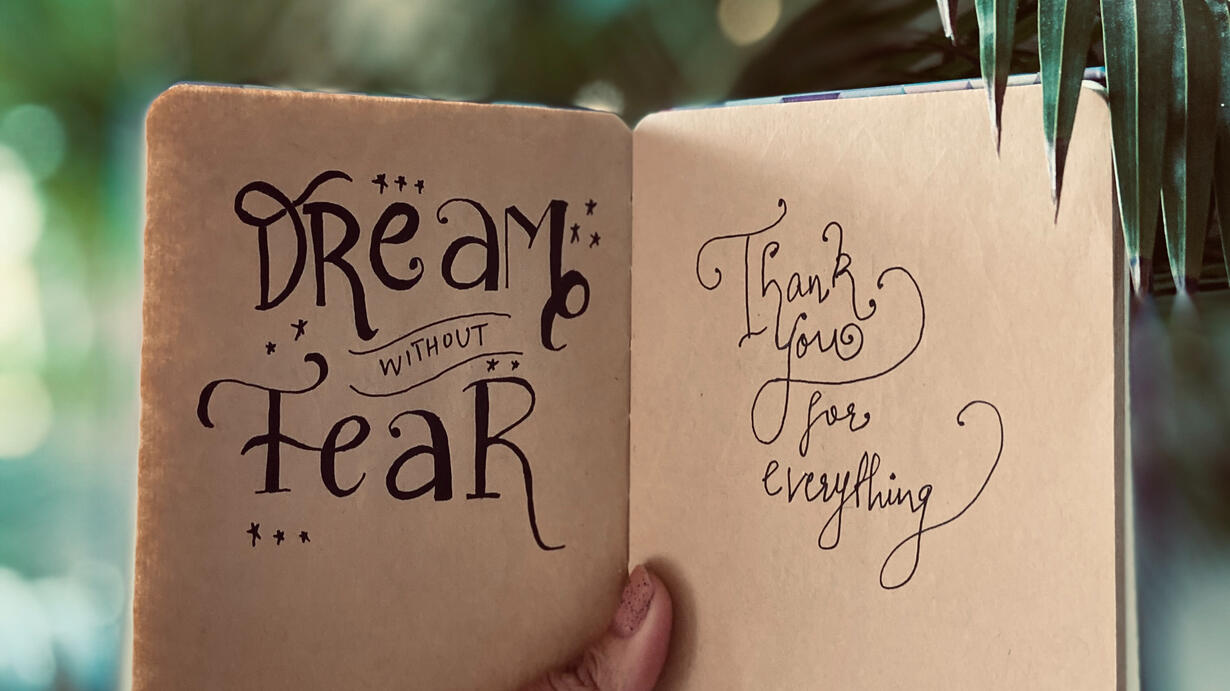 DReam
WITHOUT
FeaR
Thank
You
for
everything